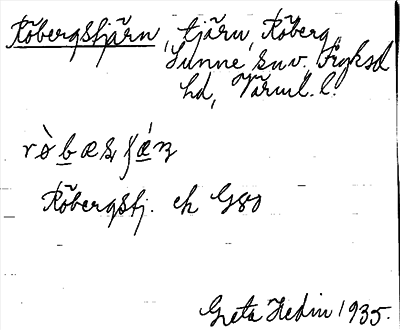 Röbergstjärn, tjärn, Röberg,
Sunne sn v. Fryksd
hd, Värml. l.
Röbergstj. ek G80
Greta Hedin 1935.